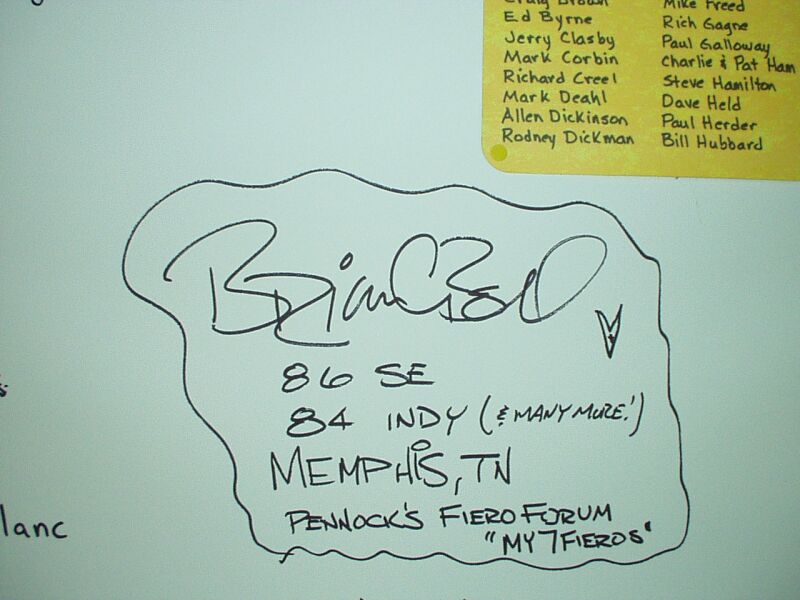 Craig Brown
Ed Byrne
Jerry Clasby
Mark Corbin
Richard Creel
Mark Deahl
Allen Dickinson
Rodney Dickman
Mike Freed
Rich Gagne
Paul Galloway
Charlie & Pat Ham
Steve Hamilton
Dave Held
Paul Herder
Bill Hubbard
86 SE
84 INDY (& MANY MORE!)
MEMPHIS, TN
PENNOCK'S FIERO FORUM
"MY7FIEROS"
lanc